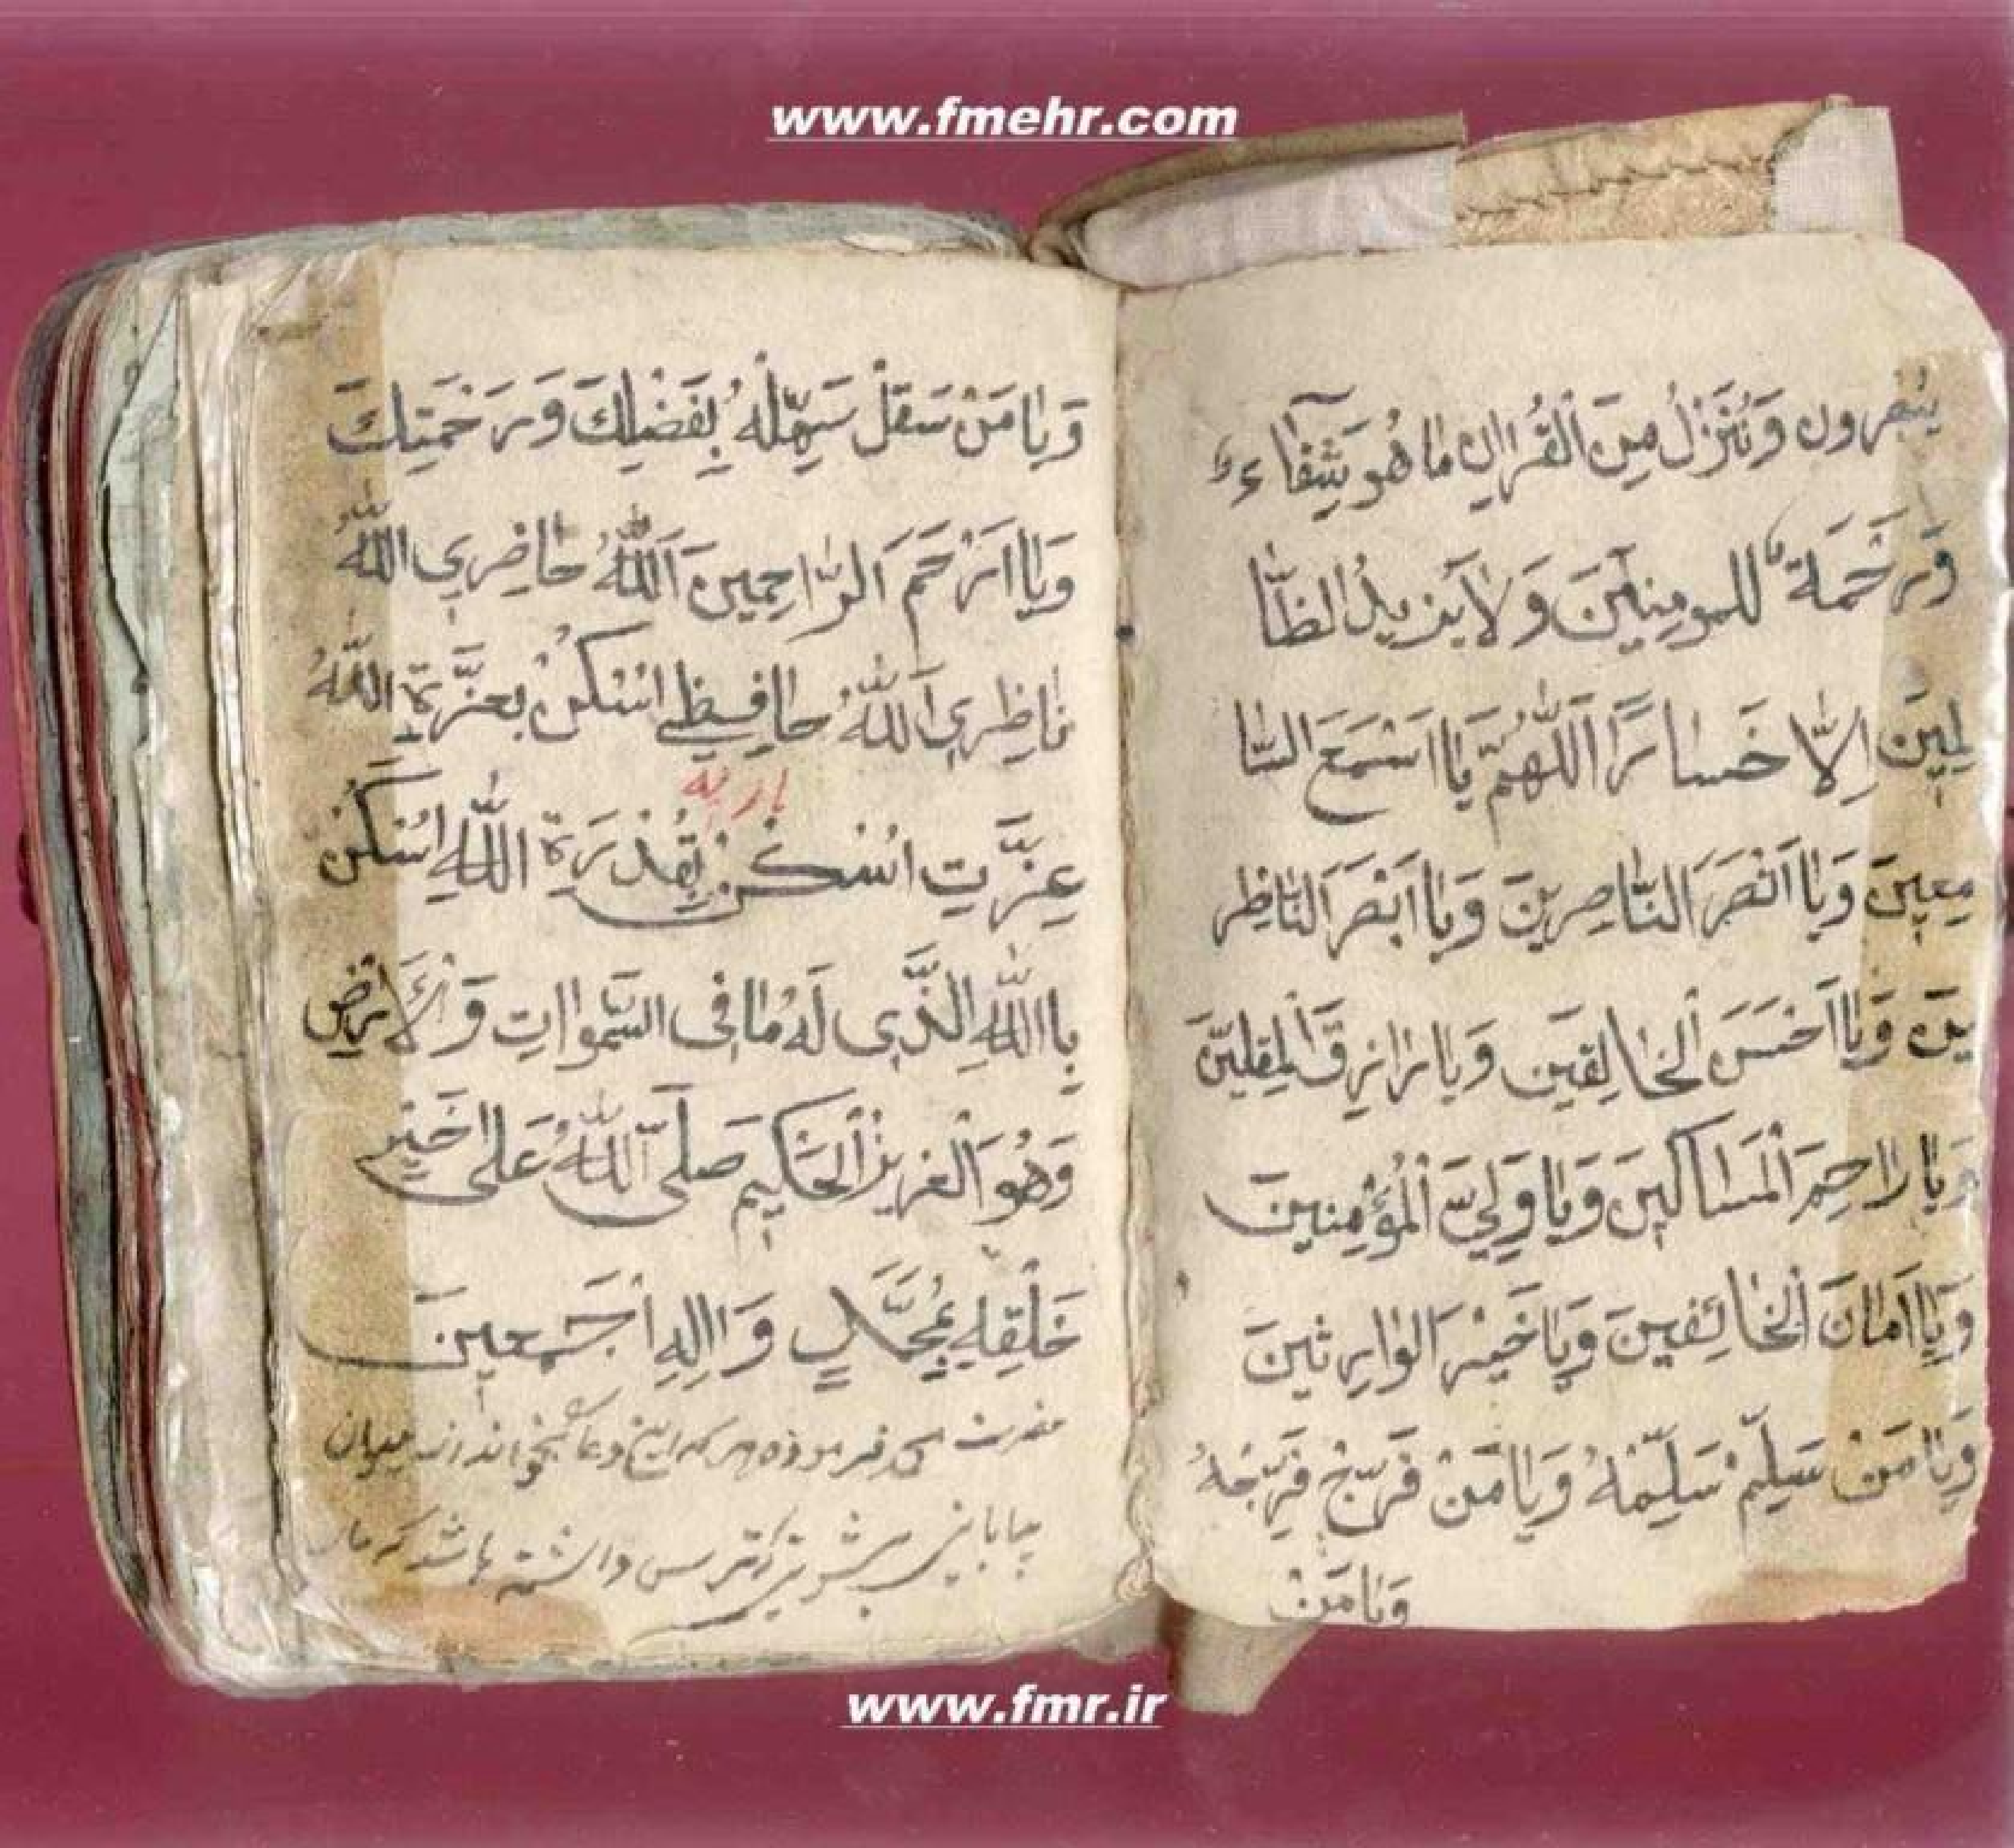 www.fmehr.com
وَنُنَزِّلُ مِنَ الْقُرْاٰنِ مٰا هُوَ شِفٰآءٌ
وَرَحْمَةٌ للمومِنِيٖنَ وَلاٰ يَزيدُ الظّٰا
لِمٖينَ اِلّاٰ خَسٰارًا اَللّٰهُمَّ يٰا اَسْمَعَ السّٰا
مِعٖينَ وَيٰا اَنْصَرَ النّٰاصِرينَ وَيٰا اَبْصَرَ النّٰاظِر
يٖنَ وَيٰا اَحْسَنَ الْخٰالِقيٖنَ وَيٰا رٰازِقَ الْمُقِلّيٖنَ
وَيٰا رٰاحِمَ الْمَسٰاكٖينَ وَيٰا وَلِيَّ الْمُؤْمِنيٖنَ
وَيٰا اَمٰانَ الْخٰائِفيٖنَ وَيٰا خَيْرَ الْوٰارِثيٖنَ
وَيٰا مَنْ سَلِّمْ سَلِّمْهُ وَيٰا مَنْ فَرِّجْ فَرِّجْهُ
وَيٰا مَنْ
وَيٰا مَنْ سَهِّلْهُ بِفَضْلِكَ وَرَحْمَتِكَ
وَيٰا اَرْحَمَ الرّٰاحِميٖنَ اَللّٰهُ حٰاضِري اَللّٰهُ
نٰاظِري اَللّٰهُ حٰافِظي اُسْكُنْ بعِزَّةِ اللّٰهُ
عِزَّتِ اُسْكُنْ بِقُدْرَةِ اللّٰهِ اُسْكُنْ
بِااللّٰهِ الَّذٖي لَهُ مٰا فِي السَّمٰوٰاتِ وَالْاَرْضِ
وَهُوَ الْعَزيزُ الْحَكٖيمِ صَلَّى اللّٰهُ عَلىٰ خَيْرِ
خَلْقِهِ مُحَمَّدٍ وَاٰلِهِ اَجْمَعٖينَ
حضرت فرموده هر كه اين دعا بخواند در ميان
بيابانی ترس داشته باشد كه
www.fmr.ir